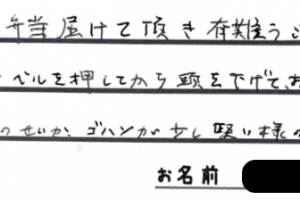 弁当届けて頂き有難うご
ベルを押してから頭を下げてお
のせいか、ゴハンが少し堅い様
お名前